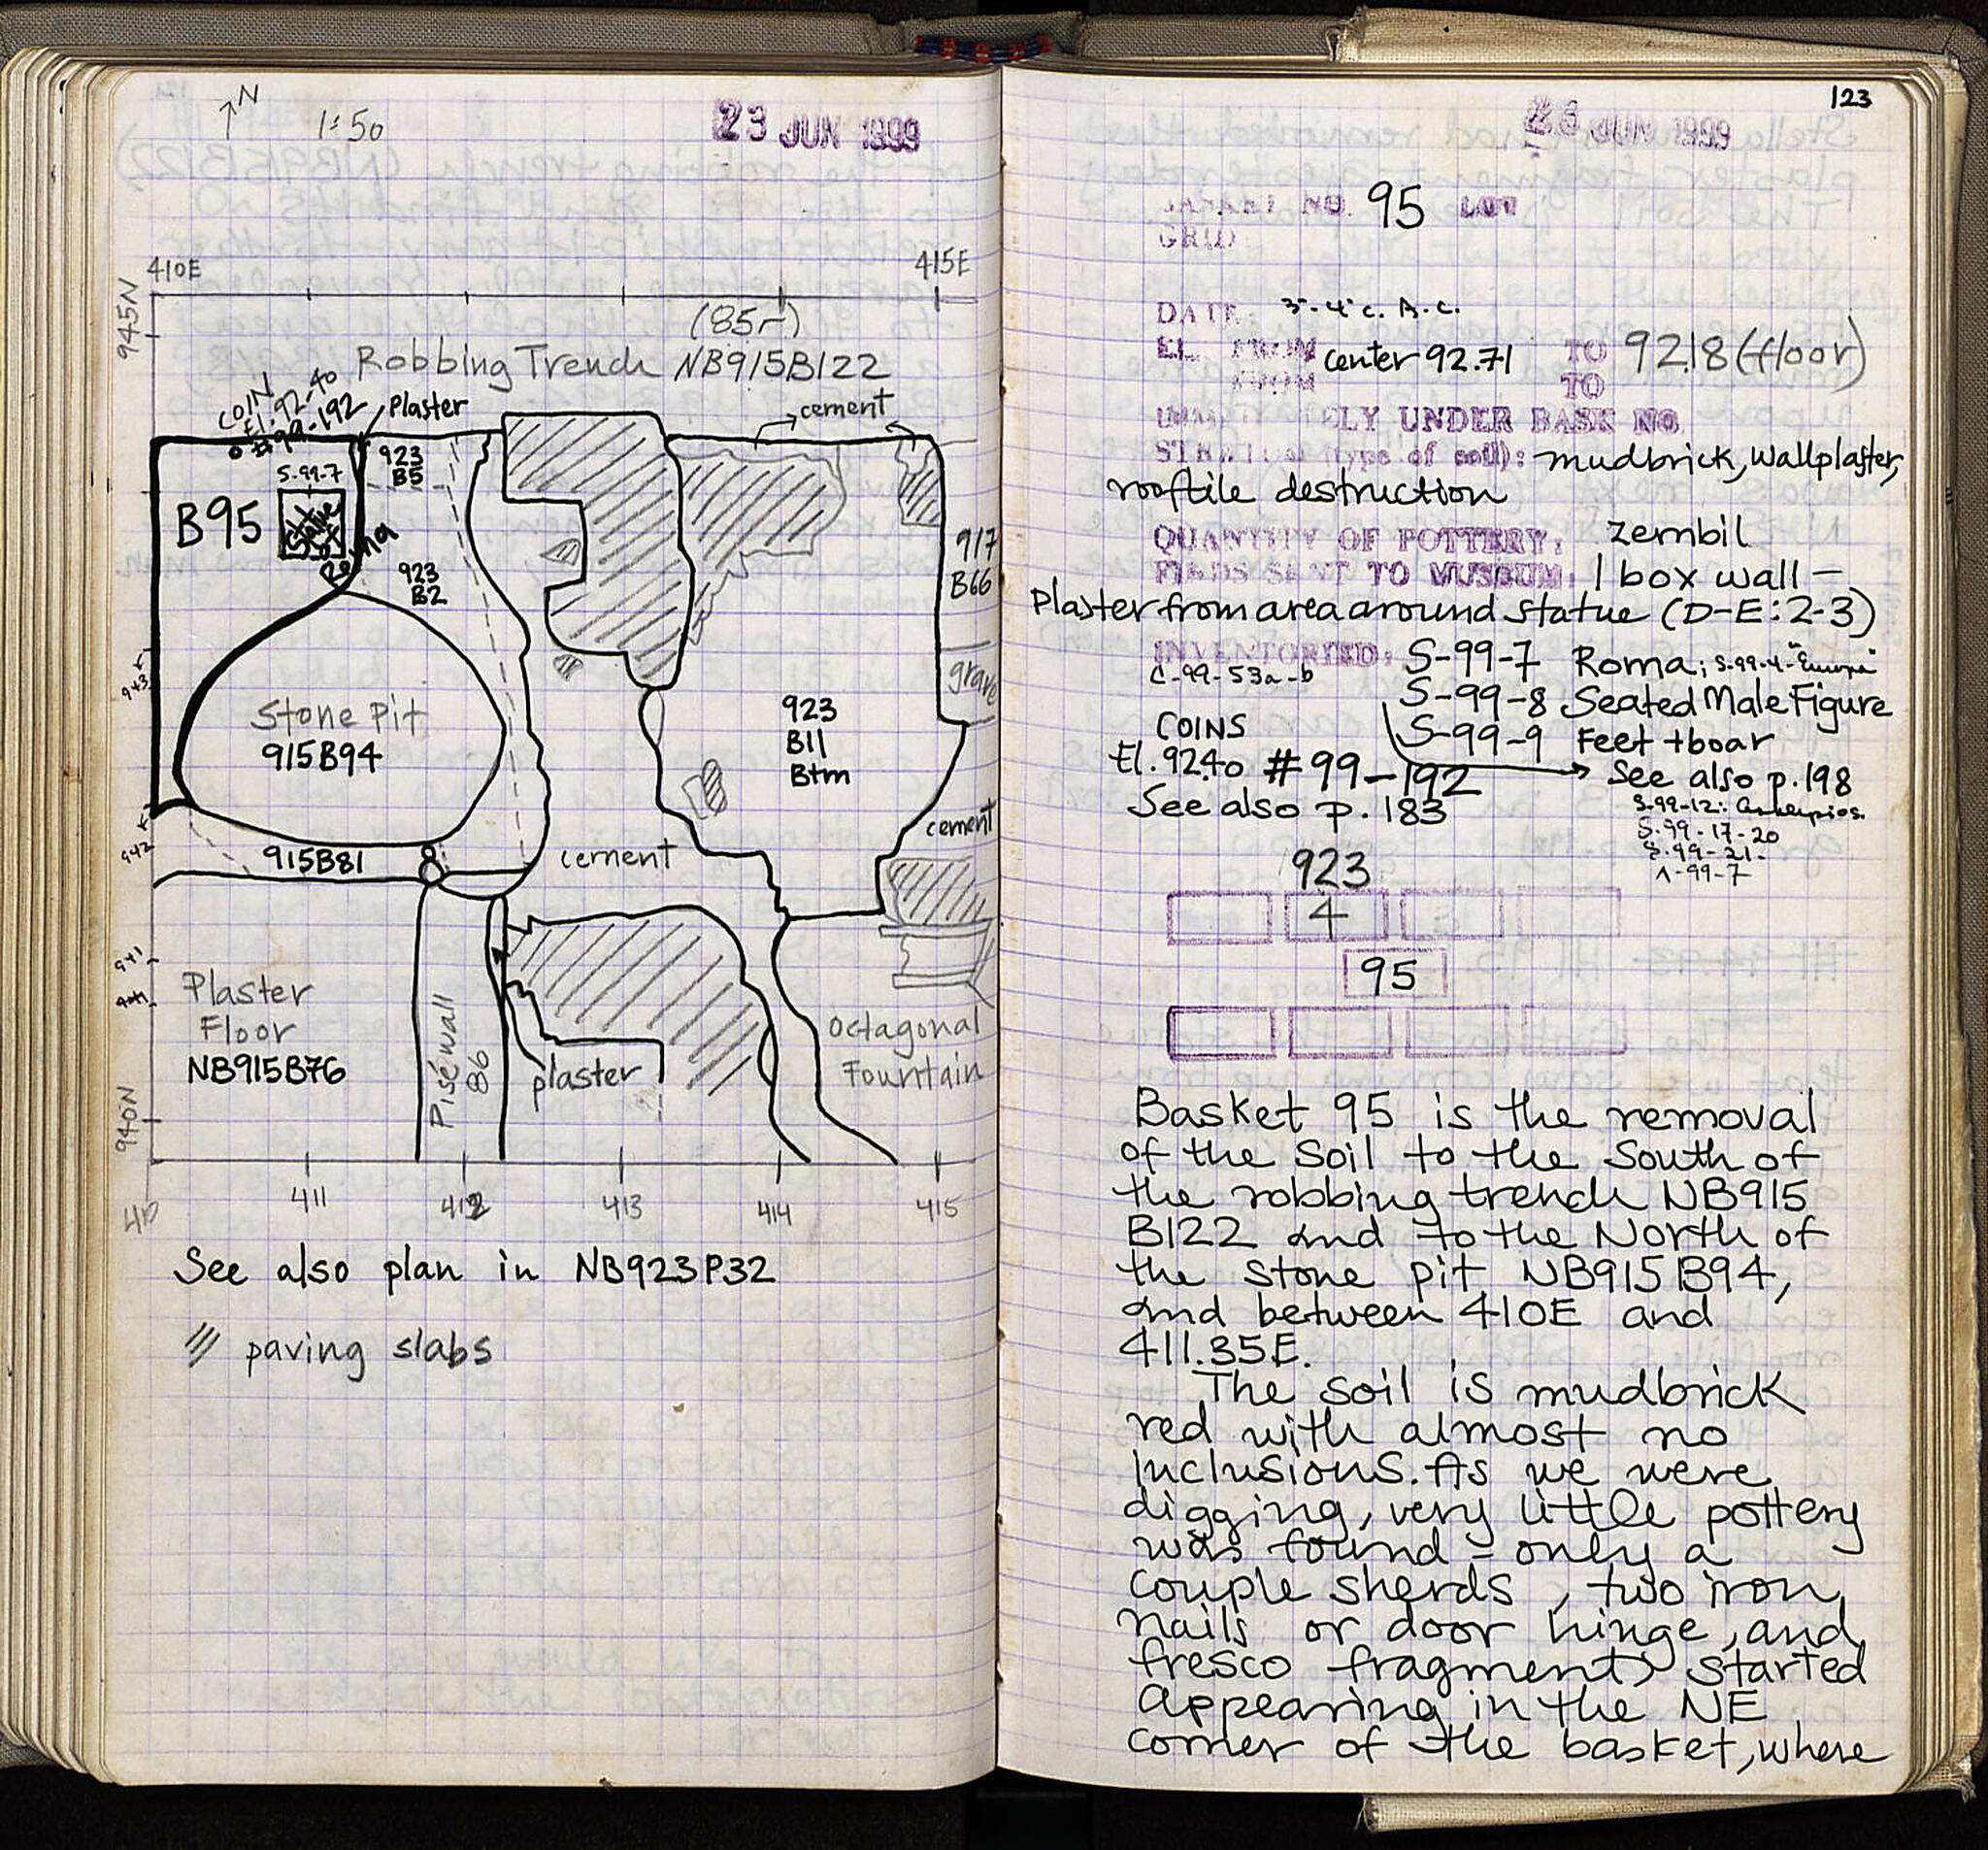 N
1:50
23 JUN 1999
410E
415E
945N
(85-)
Robbing Trench NB915B122
COIN
El. 92.40
#99-192
Plaster
cement
S-99-7
923
B5
B95
Statue
Roma
923
B2
917
B66
943
grave
Stone Pit
915B94
923
B11
Btm
942
cement
915B81
cement
941
Plaster
Floor
NB915B76
Pisé wall
86
plaster
Octagonal
Fountain
940N
410
411
412
413
414
415
See also plan in NB923P32
/// paving slabs
123
23 JUN 1999
BASKET NO. 95 LOT
GRID:
DATE: 3-4 c. A.C.
EL. FROM center 92.71 TO 92.18 (floor)
FROM TO
IMMEDIATELY UNDER BASK NO
STRATUM (type of soil): mudbrick, wallplaster,
rooftile destruction
QUANTITY OF POTTERY: zembil
FINDS SENT TO MUSEUM: 1 box wall-
Plaster from area around statue (D-E:2-3)
INVENTORIED: S-99-7 Roma; S-99-4 "Europa"
C-99-53a-b
S-99-8 Seated Male Figure
COINS
S-99-9 Feet + boar
El. 92.40 #99-192
See also p. 198
See also p. 183
S-99-12: Asklepios.
S-99-17-20
S-99-21-
A-99-7
923
4
95
Basket 95 is the removal
of the soil to the South of
the robbing trench NB915
B122 and to the North of
the stone pit NB915B94,
and between 410E and
411.35E.
The soil is mudbrick
red with almost no
inclusions. As we were
digging, very little pottery
was found - only a
couple sherds, two iron
nails or door hinge, and
fresco fragments started
appearing in the NE
corner of the basket, where